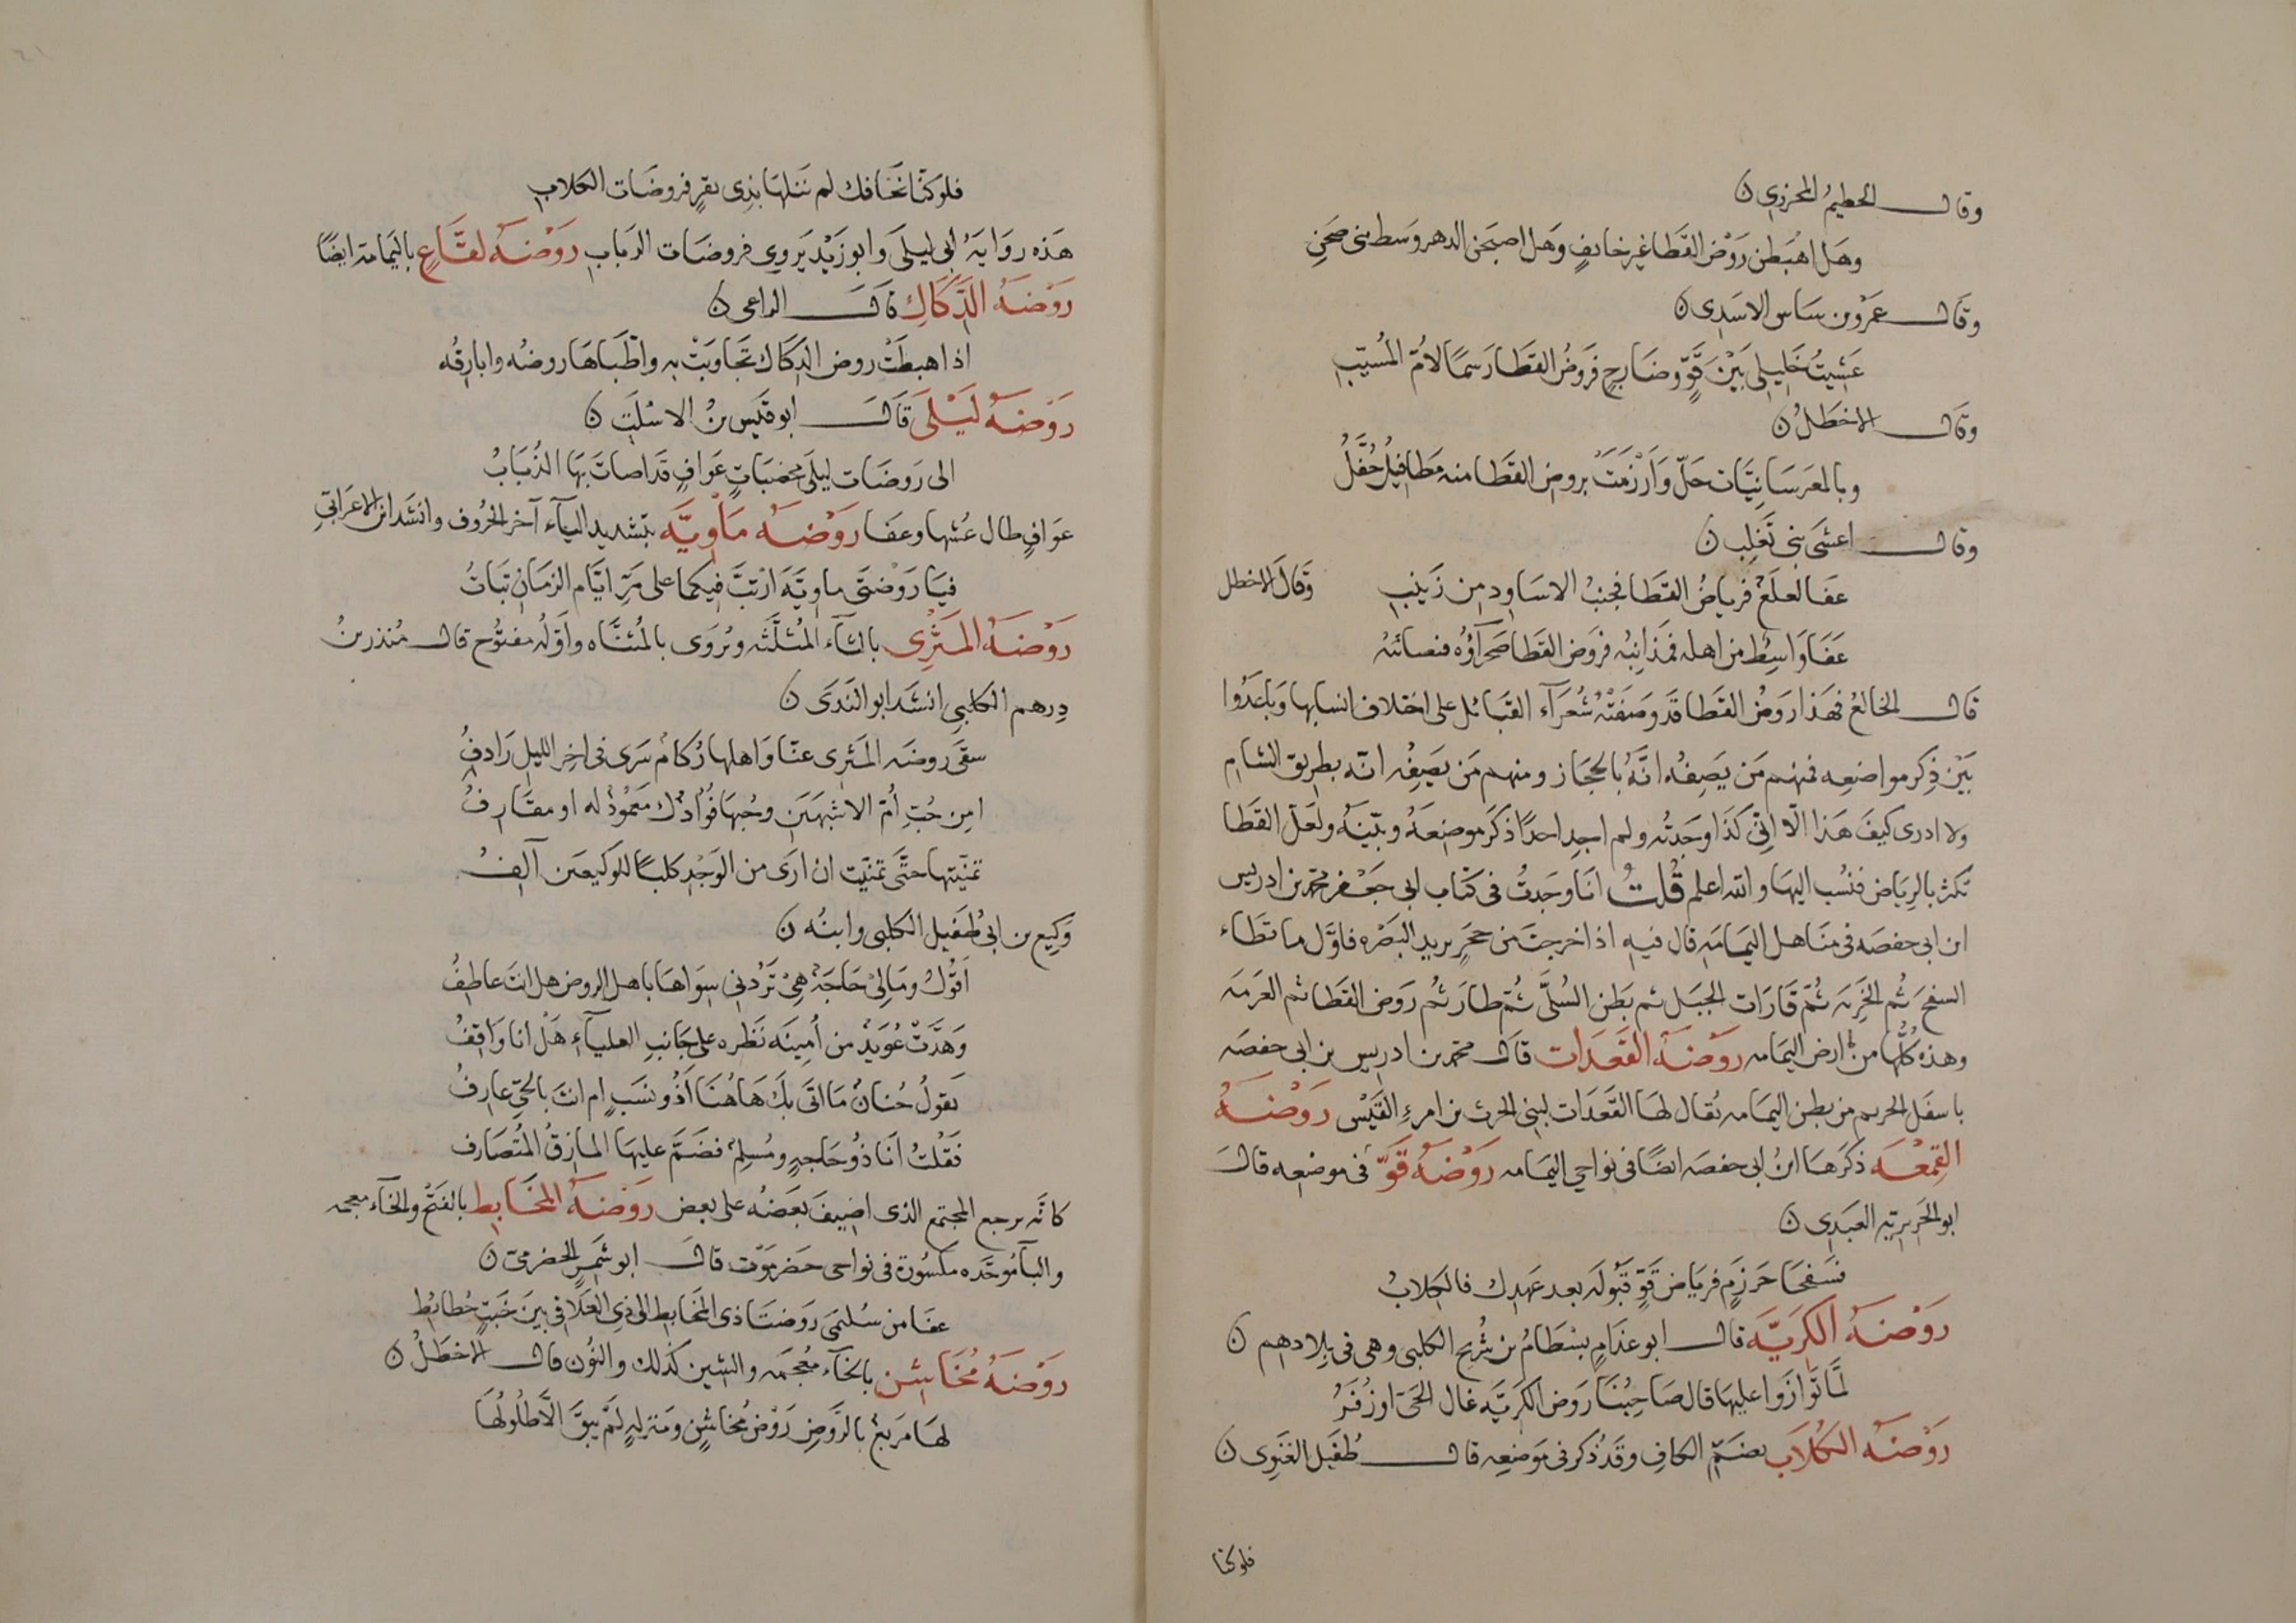 وقال الخطيم المحرزي ن
وهل اهبطن روض القطا غير خائف وهل اصبحن الدهر وسط بني صخر
وقال عمرو بن ساس الاسدي ن
غشيت خليلي بين قو وضارج فروض القطا رسما لام المسيب
وقال الاخطل ن
وبالمعرسانيات حل وارزمت بروض القطا منه مطافيل حفل
وقال اعشى بني تغلب ن
عفا لعلع فرياض القطا فجنب الاساود من زينب وقال الاخطل
عفا واسط من اهله فمذانبه فروض القطا صحراؤه فنصائبه
قال الخالع فهذا روض القطا قد وصفته شعراء القبائل على اختلاف انسابها وباعدوا
بين ذكر مواضعه فمنهم من يصفه انه بالحجاز ومنهم من يصفه انه بطريق الشام
ولا ادري كيف هذا الا اني كذا وجدته ولم اجد احدا ذكر موضعه وبينه ولعل القطا
تكثر بالرياض فنسب اليها والله اعلم قلت انا وجدت في كتاب ابي جعفر محمد بن ادريس
ابن ابي حفصه في مناهل اليمامه قال فيه اذا خرجت من حجر يريد البصره فاول ما تطاء
السفح ثم الخربه ثم قارات الجبل ثم بطن السلى ثم طار ثم روض القطا ثم العرمه
وهذه كلها من ارض اليمامه روضة القعدات قال محمد بن ادريس بن ابي حفصه
باسفل الحريم من بطن اليمامه يقال لها القعدات لبني الحرث بن امرء القيس روضة
القمعه ذكرها ابن ابي حفصه ايضا في نواحي اليمامه روضة قو في موضعه قال
ابو الجريريه العبدي ن
فسفحا حرزم فرياض قو قبولة بعد عهدك فالكلاب
روضة الكريه قال ابو عذام بسطام بن شريح الكلبي وهي في بلادهم ن
لما توازوا علينا قال صاحبنا روض الكريه غال الحي او زفر
روضة الكلاب بضم الكاف وقد ذكر في موضعه قال طفيل الغنوي ن
فلو كنا
فلو كنا نخافك لم ننلها بذي بقر فروضات الكلاب
هذه رواية ابي ليلى وابو زيد يروي فروضات الرباب روضة لقاع باليمامة ايضا
روضة اللكاك قال الراعي ن
اذا هبطت روض اللكاك تجاوبت به واطباها روضه وابارقه
روضة ليلى قال ابو قيس بن الاسلت ن
الى روضات ليلى مخضبات عواف قد اصات بها الذباب
عواف طال عشبها وعفا روضة ماوية بتشديد الياء آخر الحروف وانشد ابن الاعرابي
فيا روضتي ماوية ارتب فيكما على مر ايام الزمان نبات
روضة المثري بالثاء المثلثه وتروى بالمثناه واوله مفتوح قال منذر بن
درهم الكلبي انشد ابو الندى ن
سقى روضة المثري عنا واهلها ركام سرى في اخر الليل رادف
امن حب ام الاشيمين وحبها فؤادك معموذ له او مقارف
تمنيتها حتى تمنيت ان ارى من الوجد كلبا للوكيعين آلف
وكيع بن ابي طفيل الكلبي وابنه ن
اقول ومالي حاجة هي تردني سواها باهل الروض هل انت عاطف
وهدت عويد من امينه نظره على جانب العلياء هل انا واقف
يقول حنان ما اتى بك هاهنا اذو نسب ام انت بالحي عارف
فقلت انا ذو حاجه ومسلم فضم علينا المازق المتصارف
كانه يرجع المجتمع الذي اضيف بعضه على بعض روضة المخابط بالفتح والخاء معجمه
والبا موحده مكسورة في نواحي حضرموت قال ابو شمر الحضرمي ن
عفا من سليمى روضتا ذي المخابط الى ذي العلاقي بين خبت خطائط
روضة مخاشن بالخاء معجمه والشين كذلك والنون قال الاخطل ن
لها مربع بالروض روض مخاشن ومنزلة لم يبق الا طلولها